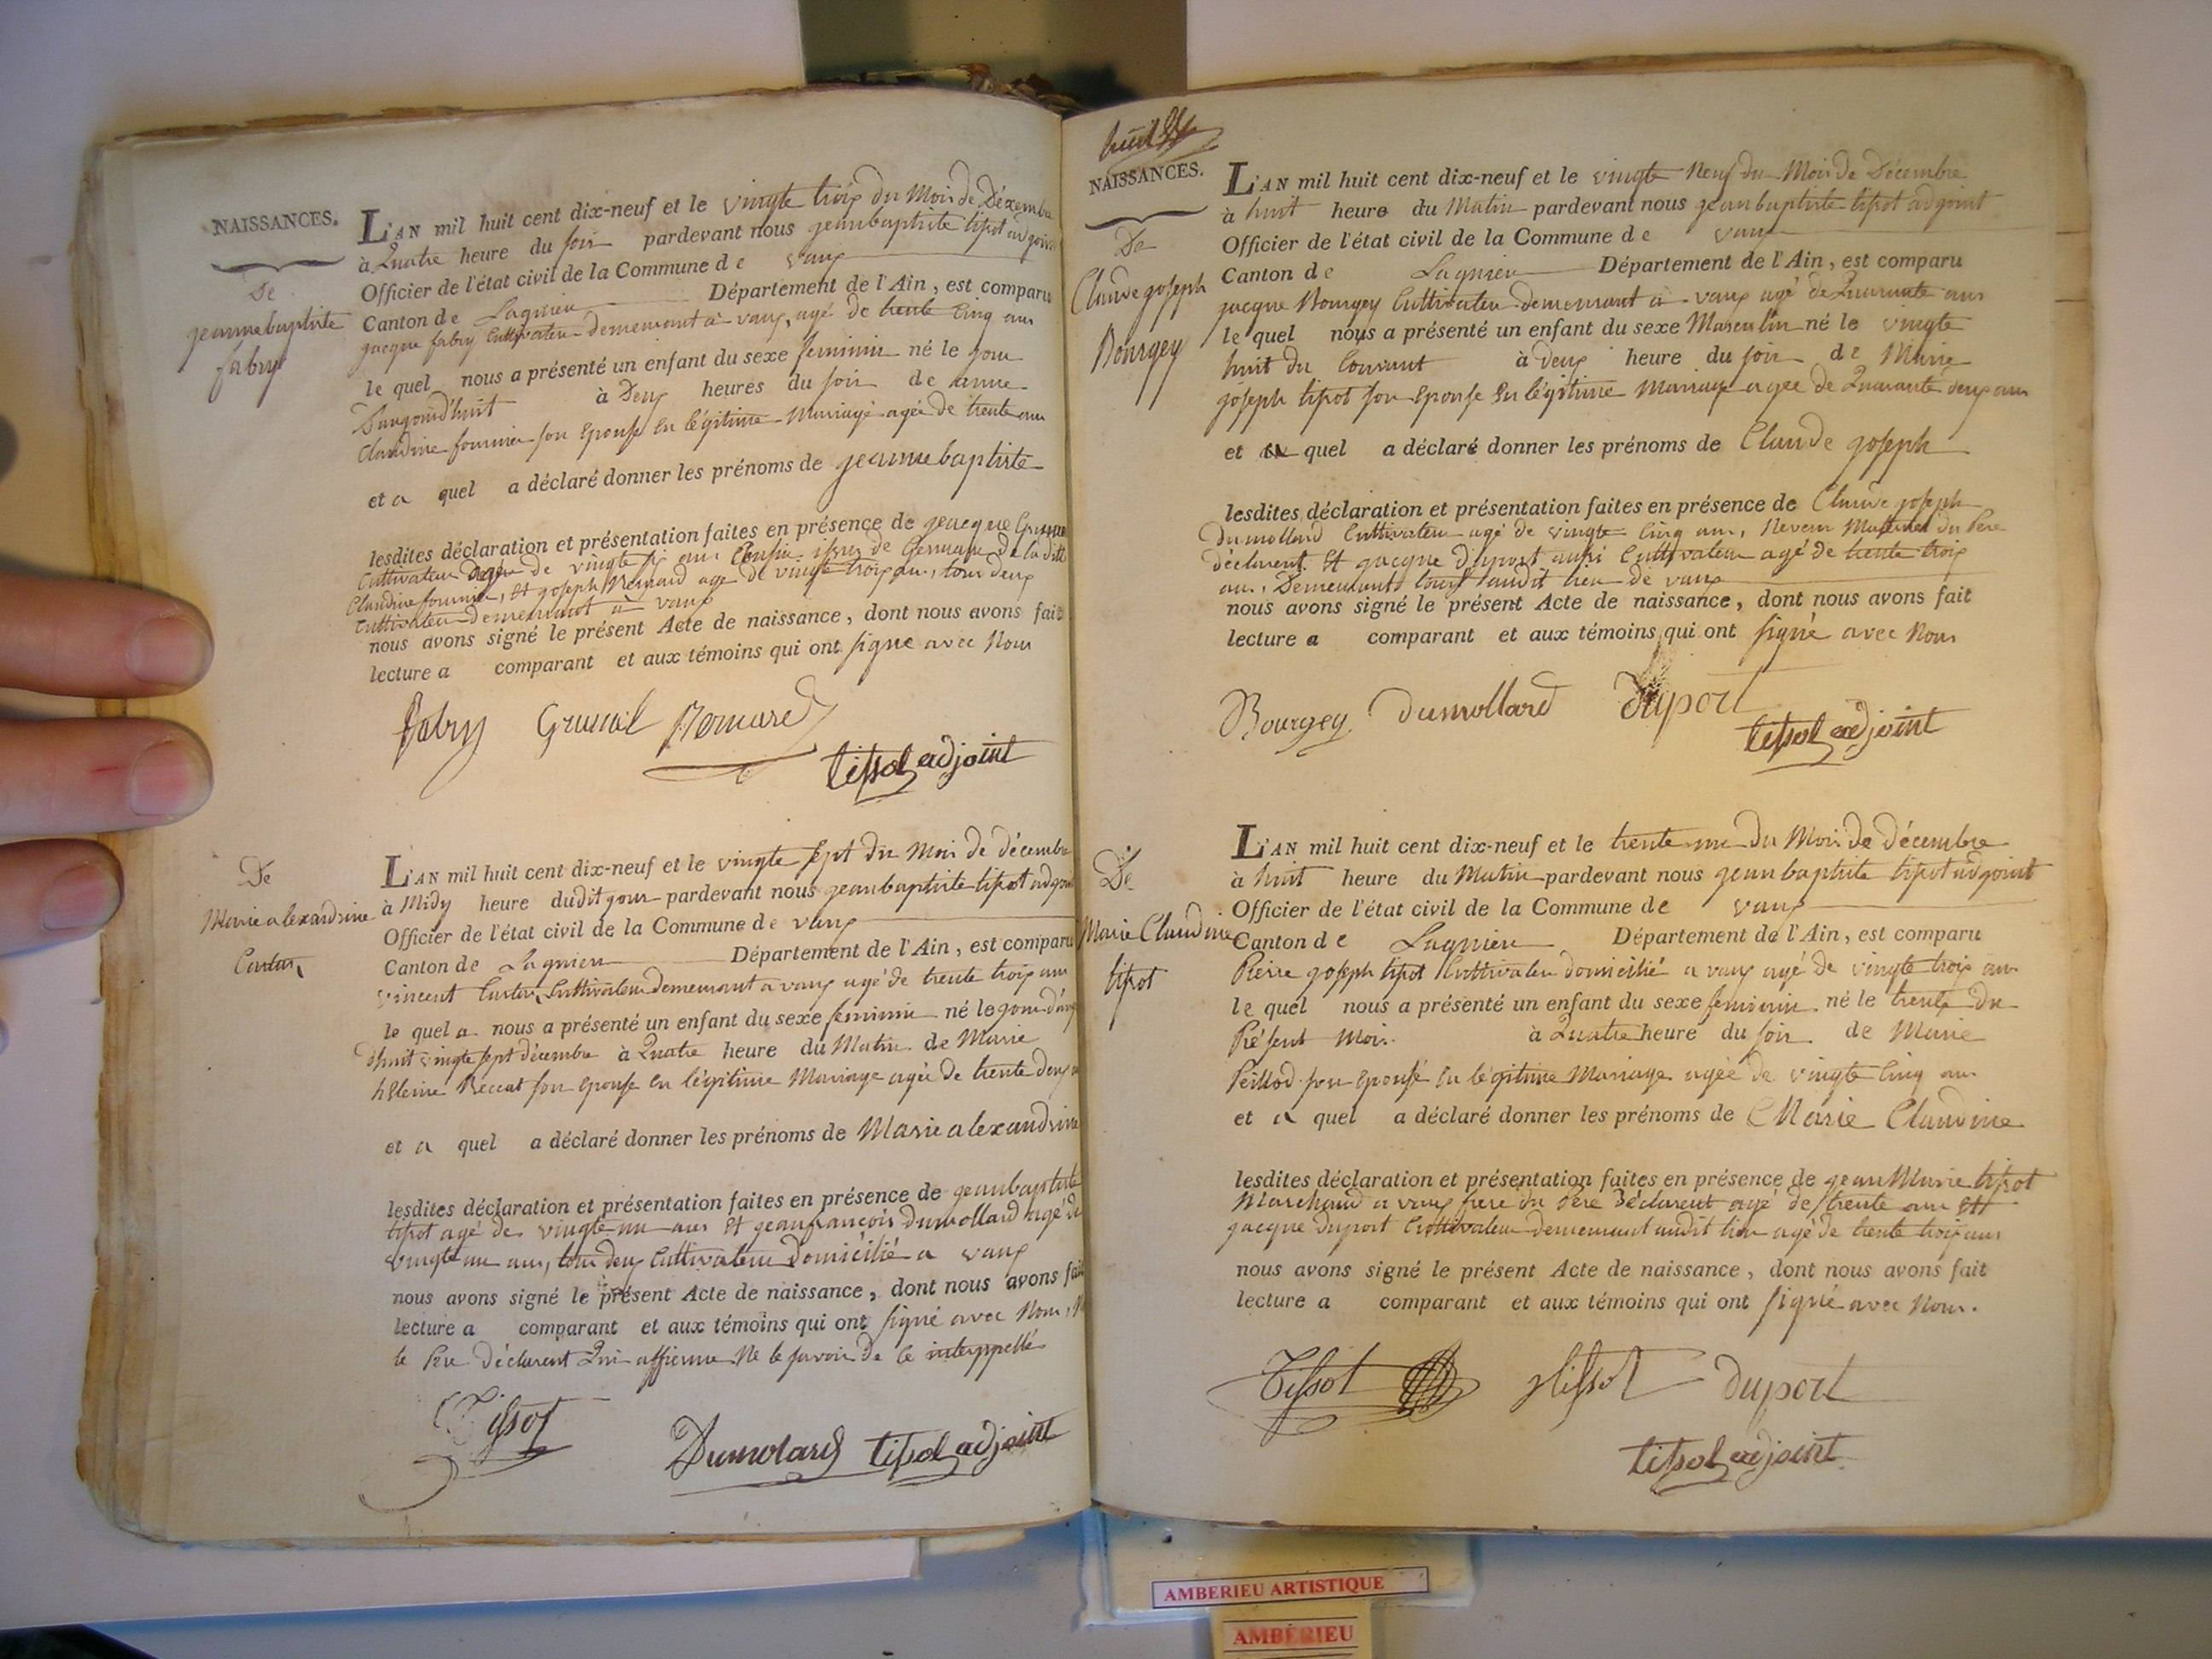 NAISSANCES.
De
jeannebaptiste
fabry
L'AN mil huit cent dix-neuf et le vingte trois du Mois de Décembre
à Quatre heure du soir pardevant nous jeanbaptiste tissot adjoint
Officier de l'état civil de la Commune de vaux
Canton de Lagnieu Département de l'Ain, est comparu
jacque fabry Cultivateur demeurant à vaux, agé de trente Cinq ans
le quel nous a présenté un enfant du sexe feminin né le jour
Daujourd'huit à Deux heures du soir de anne
Claudine fournier son Epouse En légitime Mariage agée de trente ans
et a quel a déclaré donner les prénoms de jeannebaptiste
lesdites déclaration et présentation faites en présence de jeacque
Cultivateur agé de vingte six ans Cousin issus de Germain De la ditte
Claudine fournier, Et joseph Bernard age de vingte trois ans, tous deux
Cultivateur demeurant à vaux
nous avons signé le présent Acte de naissance, dont nous avons fait
lecture a comparant et aux témoins qui ont signé avec Nous
fabry Bernard
tissot adjoint
De
Marie alexandrine
L'AN mil huit cent dix-neuf et le vingte sept du Mois de décembre
à Midy heure dudit jour pardevant nous jeanbaptiste tissot adjoint
Officier de l'état civil de la Commune de vaux
Canton de Lagnieu Département de l'Ain, est comparu
vincent Cultivateur demeurant a vaux agé de trente trois ans
le quel a nous a présenté un enfant du sexe feminin né le jour d'auj
dhuit vingte sept décembre à Quatre heure du Matin de Marie
hélene son Epouse En légitime Mariage agée de trente deux a
et a quel a déclaré donner les prénoms de Marie alexandrine
lesdites déclaration et présentation faites en présence de jeanbaptiste
tissot agé de vingte un ans Et jeanfrancois dumollard agé de
vingte un ans, tous deux Cultivateur Domicilié a vaux
nous avons signé le présent Acte de naissance, dont nous avons fait
lecture a comparant et aux témoins qui ont signé avec Nous,
le Pere déclarent Qui affierme Ne le savoir de Ce interppellé
Tissot
Dumolard tissot adjoint
NAISSANCES.
De
Claude joseph
Bourgey
L'AN mil huit cent dix-neuf et le vingte Neuf du Mois de Décembre
à huit heure du Matin pardevant nous jeanbaptiste tissot adjoint
Officier de l'état civil de la Commune de vaux
Canton de Lagnieu Département de l'Ain, est comparu
jacque Bourgey Cultivateur demeurant à vaux agé de Quarante ans
le quel nous a présenté un enfant du sexe Masculin né le vingte
huit du Courant à deux heure du soir de Marie
joseph tissot son Epouse En légitime Mariage agee de Quarante deux ans
et a quel a déclaré donner les prénoms de Claude joseph
lesdites déclaration et présentation faites en présence de Claude joseph
dumollard Cultivateur agé de vingte Cinq ans, Neveu Maternel du Pere
déclarent Et jacque duport aussi Cultivateur agé de trente trois
ans, Demeurants tous audit lieu de vaux
nous avons signé le présent Acte de naissance, dont nous avons fait
lecture a comparant et aux témoins qui ont signé avec Nous
Bourgey Dumollard duport
tissot adjoint
De
Marie Claudine
tissot
L'AN mil huit cent dix-neuf et le trente un du Mois de décembre
à huit heure du Matin pardevant nous jeanbaptiste tissot adjoint
Officier de l'état civil de la Commune de vaux
Canton de Lagnieu Département de l'Ain, est comparu
Pierre joseph tissot Cultivateur domicilié a vaux agé de vingte trois ans
le quel nous a présenté un enfant du sexe feminin né le trente du
Présent Mois à Quatre heure du soir de Marie
Peillod son Epouse En légitime Mariage agée de vingte Cinq ans
et a quel a déclaré donner les prénoms de Marie Claudine
lesdites déclaration et présentation faites en présence de jean Marie tissot
Marchand a vaux frere du Pere Déclarent agé de trente ans Et
jacque duport Cultivateur demeurant audit lieu agé de trente trois ans
nous avons signé le présent Acte de naissance, dont nous avons fait
lecture a comparant et aux témoins qui ont signé avec Nous.
Tissot tissot duport
tissot adjoint
AMBERIEU ARTISTIQUE
AMBÉRIEU